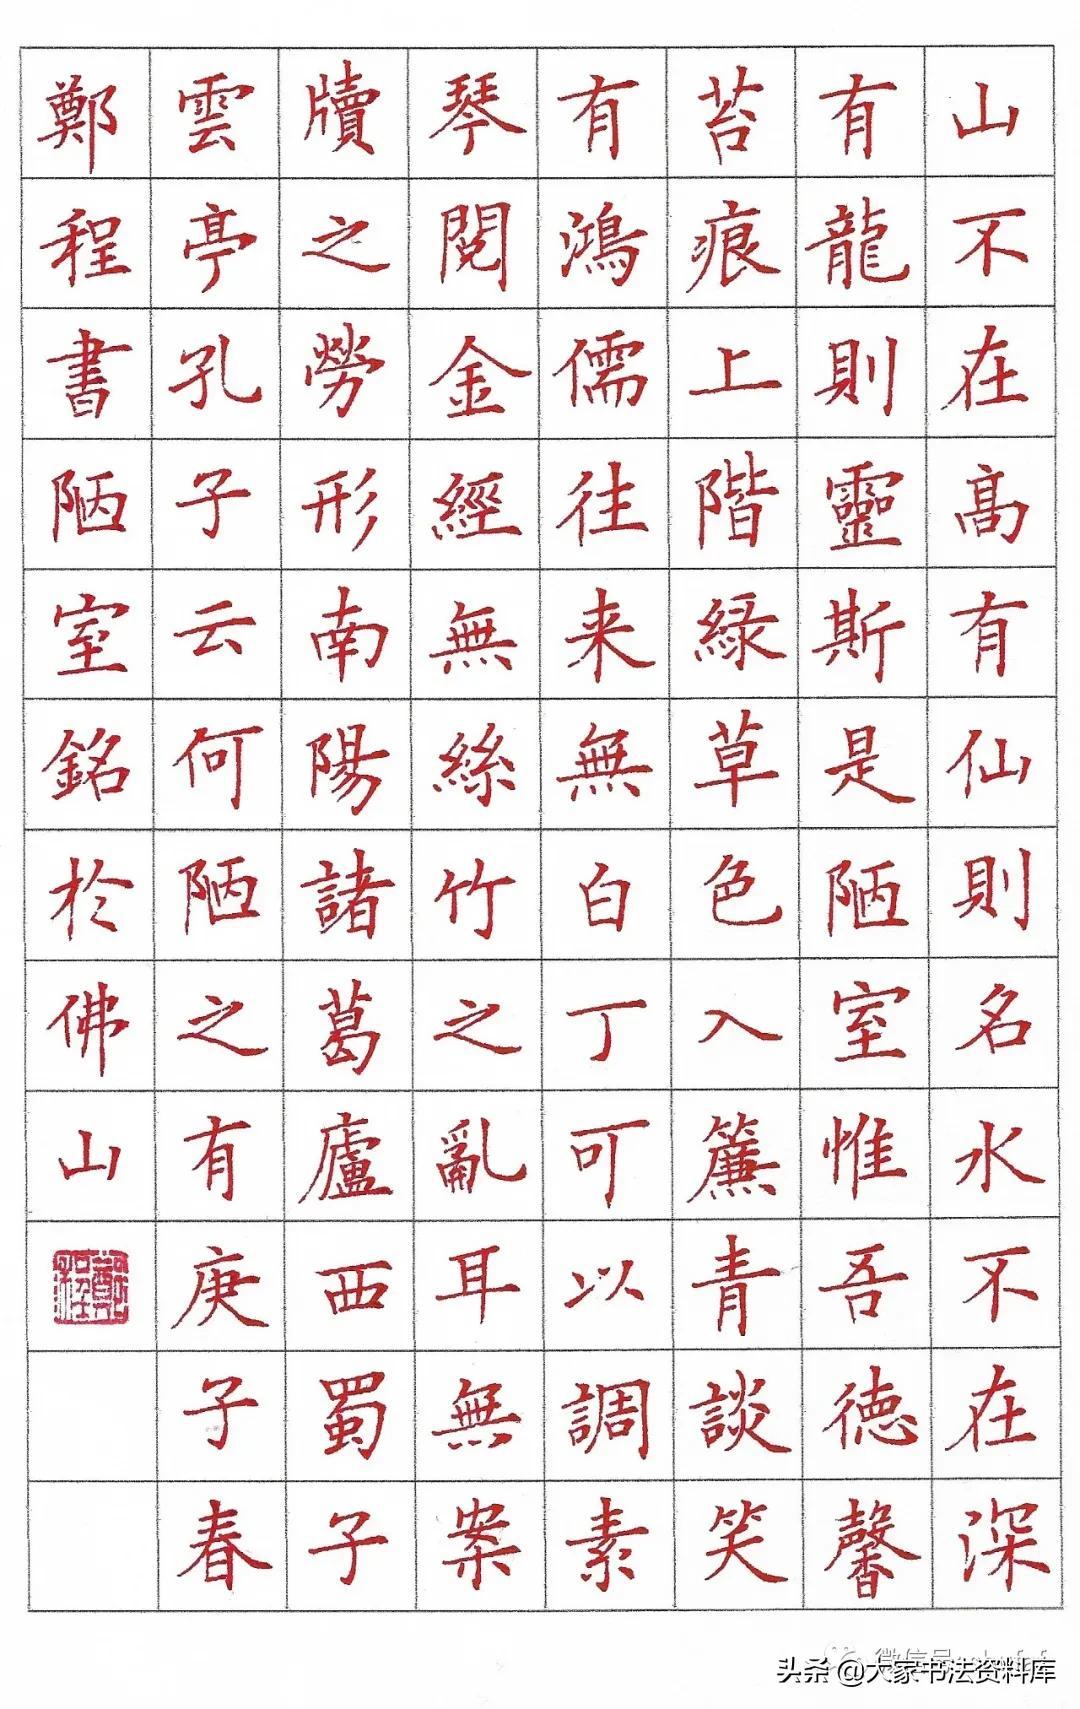 山不在高有仙則名水不在深
有龍則靈斯是陋室惟吾德馨
苔痕上階綠草色入簾青談笑
有鴻儒往来無白丁可以調素
琴閱金經無絲竹之亂耳無案
牘之勞形南陽諸葛廬西蜀子
雲亭孔子云何陋之有庚子春
鄭程書陋室銘於佛山
鄭程
头条 @大家书法资料库